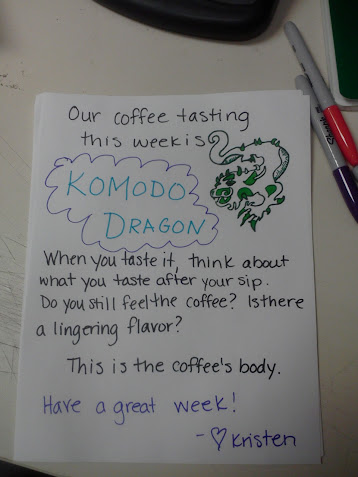 Our coffee tasting
this week is
KOMODO
DRAGON
When you taste it, think about
what you taste after your sip.
Do you still feel the coffee? Is there
a lingering flavor?
This is the coffee's body.
Have a great week!
- ♡ Kristen
Sharpie